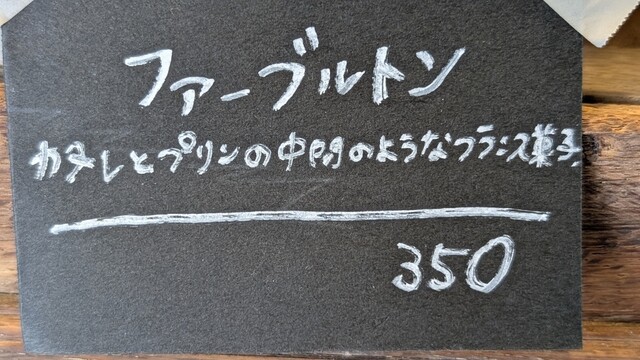 ファーブルトン
カヌレとプリンの中間のようなフランス菓子
350